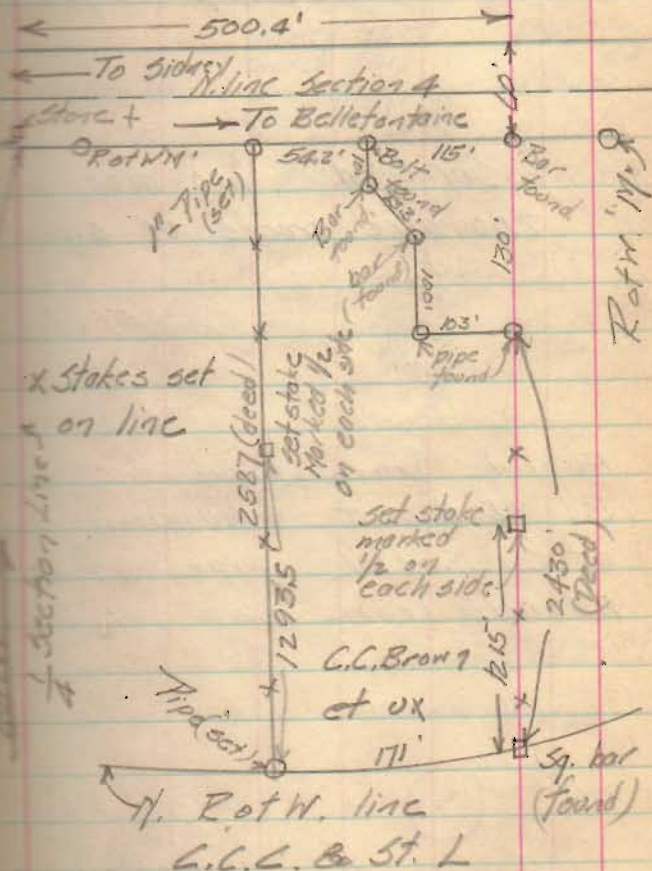 500.4'
To Sidney
N. line Section 4
60
Stone +
To Bellefontaine
R of W M.
54.2'
Bolt
found
115'
Bar
found
R of W. "M."
1" Pipe
(set)
10'
Bar
found
53.3'
bar
found
130'
100'
103'
pipe
found
x Stakes set
on line
2587 (deed)
set stake
Marked 1/2
on each side
set stake
marked
1/2 on
each side
2430'
(Deed)
1/4 Section Line
1293.5
1215'
C.C. Brown
et ux
Pipe (set)
171'
Sq. bar
(found)
N. R of W. line
C.C.C. & St. L